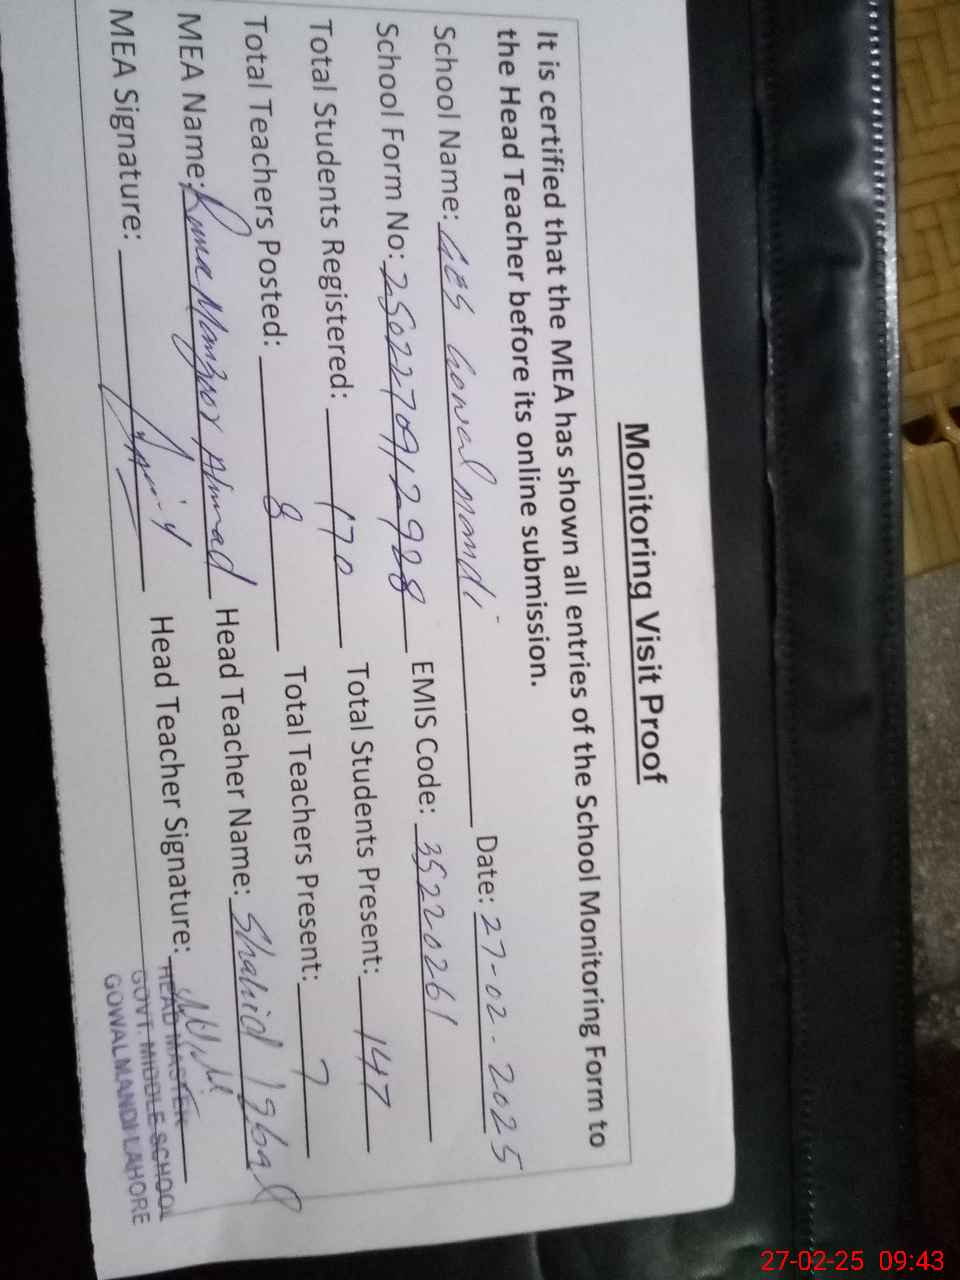 Monitoring Visit Proof
It is certified that the MEA has shown all entries of the School Monitoring Form to
the Head Teacher before its online submission.
School Name: GES Gowalmandi Date: 27-02-2025
School Form No: 2502270912928 EMIS Code: 35220261
Total Students Registered: 170 Total Students Present: 147
Total Teachers Posted: 8 Total Teachers Present: 7
MEA Name: Rana Manzoor Ahmad Head Teacher Name: Shahid Iqbal
MEA Signature: Head Teacher Signature:
HEAD MASTER
GOVT. MIDDLE SCHOOL
GOWALMANDI LAHORE
27-02-25 09:43